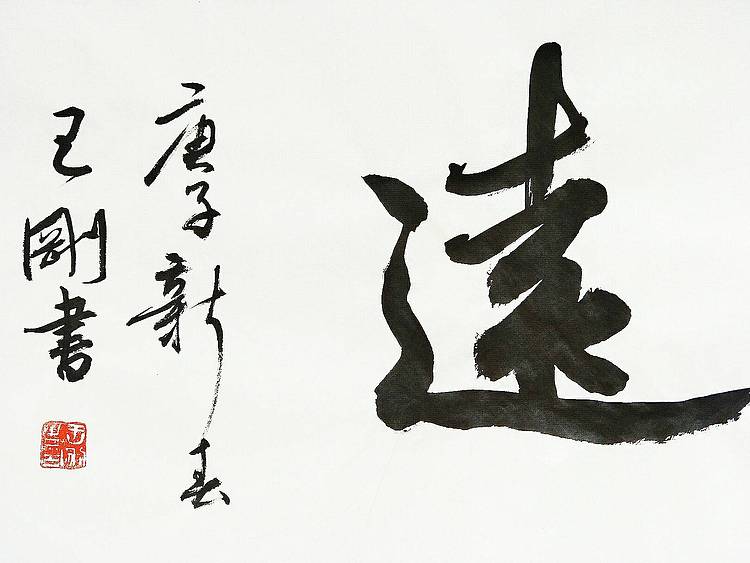 遠
庚子新春
王剛書